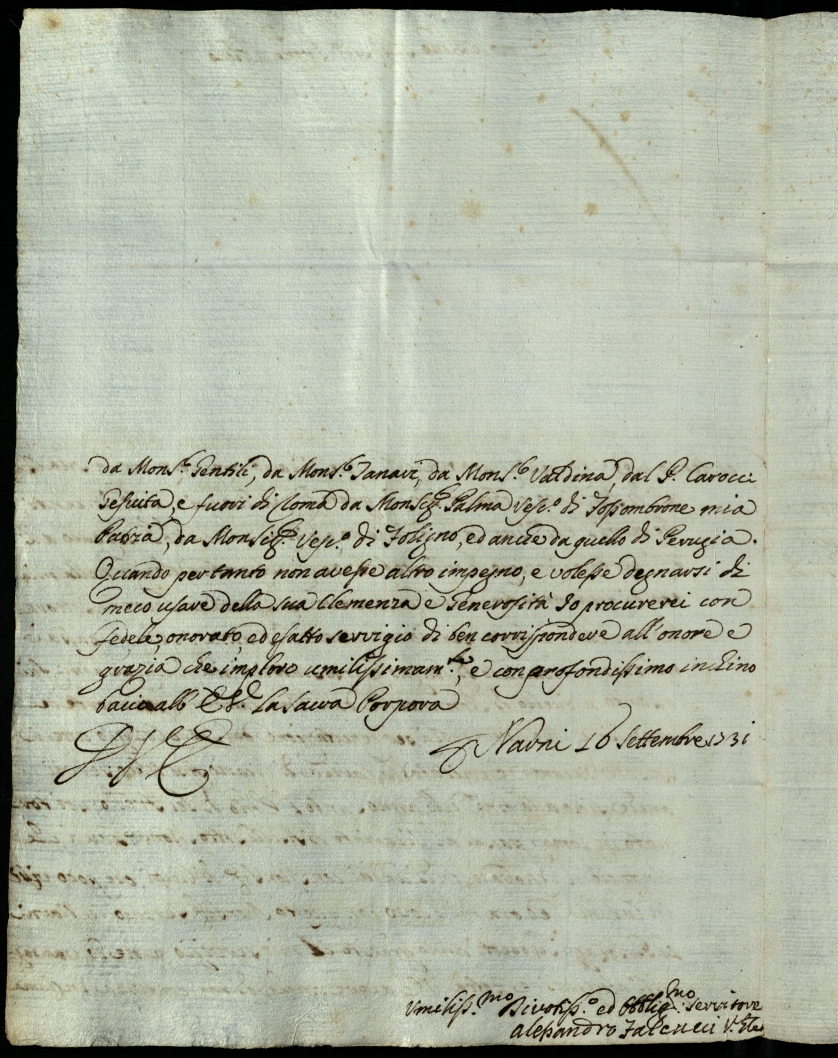 da Mons.r Gentili, da Mons.r Tanari, da Mons.r Valdina, dal P. Carocci
Gesuita, e fuori di Roma da Monsig.r Palma Vesc.o di Fossombrone mia
Patria, da Monsig.r Vesc.o di Foligno, ed anche da quello di Perugia.
Quando pertanto non avesse altro impegno, e volesse degnarsi di
meco usare della sua Clemenza e Generosità Io procurerei con
fedele, onorato, ed esatto servigio di ben corrispondere all'onore e
grazia che imploro umilissimam.te, e con profondissimo inchino
bacio all' E.V. La Sacra Porpora
D V E
Narni 16 Settembre 1731
Umiliss.mo Divotiss.o ed Obblig.mo Servitore
Alessandro Falcucci